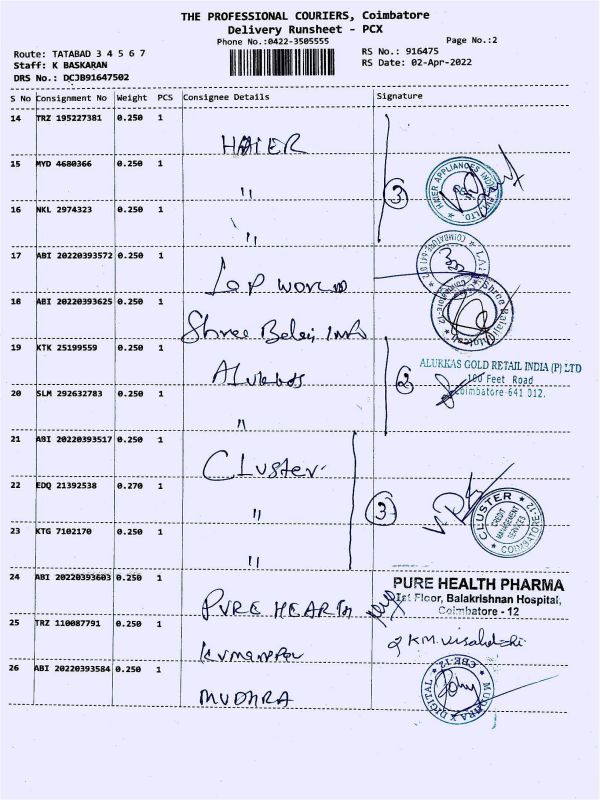 THE PROFESSIONAL COURIERS, Coimbatore
Delivery Runsheet - PCX
Phone No.:0422-3505555
Page No.:2
Route: TATABAD 3 4 5 6 7
RS No.: 916475
Staff: K BASKARAN
RS Date: 02-Apr-2022
DRS No.: DCJB91647502
S No Consignment No Weight PCS Consignee Details Signature
14 TRZ 195227381 0.250 1
HAIER
15 MYD 4680366 0.250 1
"
3
HAIER APPLIANCES INDIA PVT. LTD.
16 NKL 2974323 0.250 1
"
17 ABI 20220393572 0.250 1
Lap World
18 ABI 20220393625 0.250 1
Shree Balaji Info
Shree Balaji
19 KTK 25199559 0.250 1
Alukkas
2
ALUKKAS GOLD RETAIL INDIA (P) LTD
100 Feet Road
Coimbatore-641 012.
20 SLM 292632783 0.250 1
"
21 ABI 20220393517 0.250 1
Cluster
22 EDQ 21392538 0.270 1
"
3
CLUSTER
CREDIT MANAGEMENT SERVICES
COIMBATORE-12
23 KTG 7102170 0.250 1
"
24 ABI 20220393603 0.250 1
PURE HEALTH
PURE HEALTH PHARMA
1st Floor, Balakrishnan Hospital,
Coimbatore - 12
25 TRZ 110087791 0.250 1
K.M.
26 ABI 20220393584 0.250 1
MUDHRA
MUDHRA X DIGITAL
CBE-12